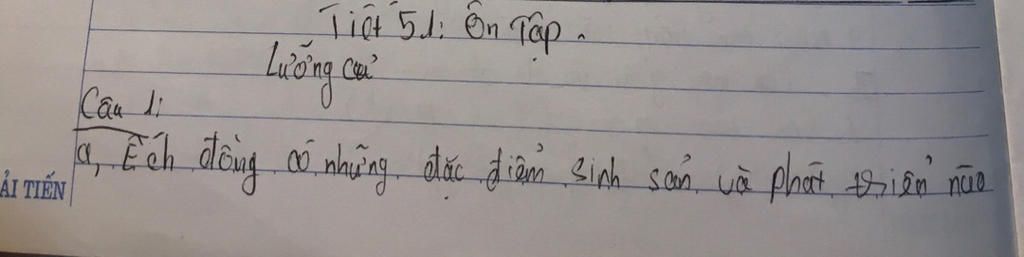 Tiết 51: Ôn Tập.
Lưỡng cư
Câu 1:
a, Ếch đồng có những đặc điểm sinh sản và phát triển nào
ẢI TIẾN